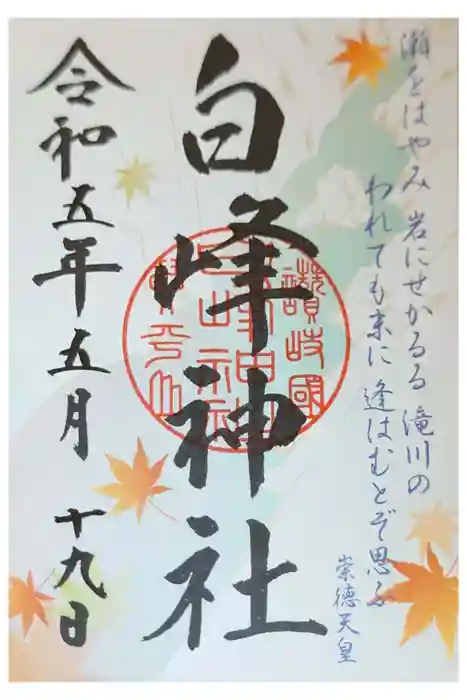 瀬をはやみ 岩にせかるる 滝川の
われても末に 逢はむとぞ思ふ
崇徳天皇
讚岐國
白峰神社
令和五年五月 十九日